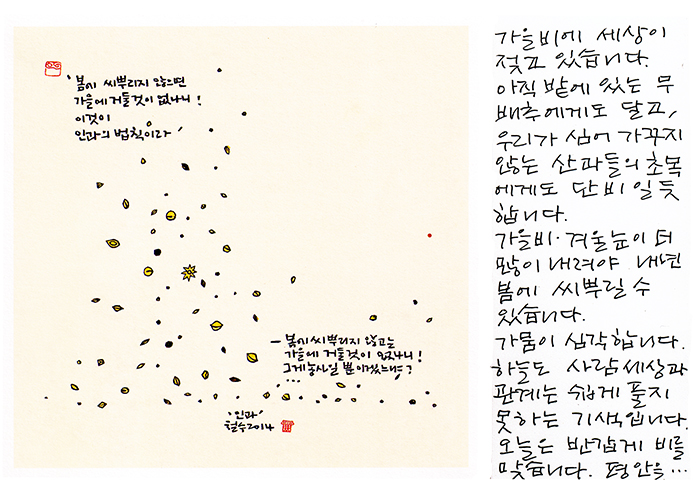 '봄에 씨뿌리지 않으면
가을에 거둘것이 없나니!
이것이
인과의 법칙이라'
- 봄에 씨뿌리지 않고는
가을에 거둘것이 없나니!
그게 농사일 뿐이겠느냐?
...
'인과'
철수 2014
가을비에 세상이
젖고 있습니다.
아직 밭에 있는 무
배추에게도 달고,
우리가 심어 가꾸지
않는 산과들의 초목
에게도 단비일듯
합니다.
가을비·겨울눈이 더
많이 내려야 내년
봄에 씨뿌릴 수
있습니다.
가뭄이 심각합니다.
하늘도 사람세상과
관계는 쉽게 풀지
못하는 기색입니다.
오늘은 반갑게 비를
맞습니다. 평안을...